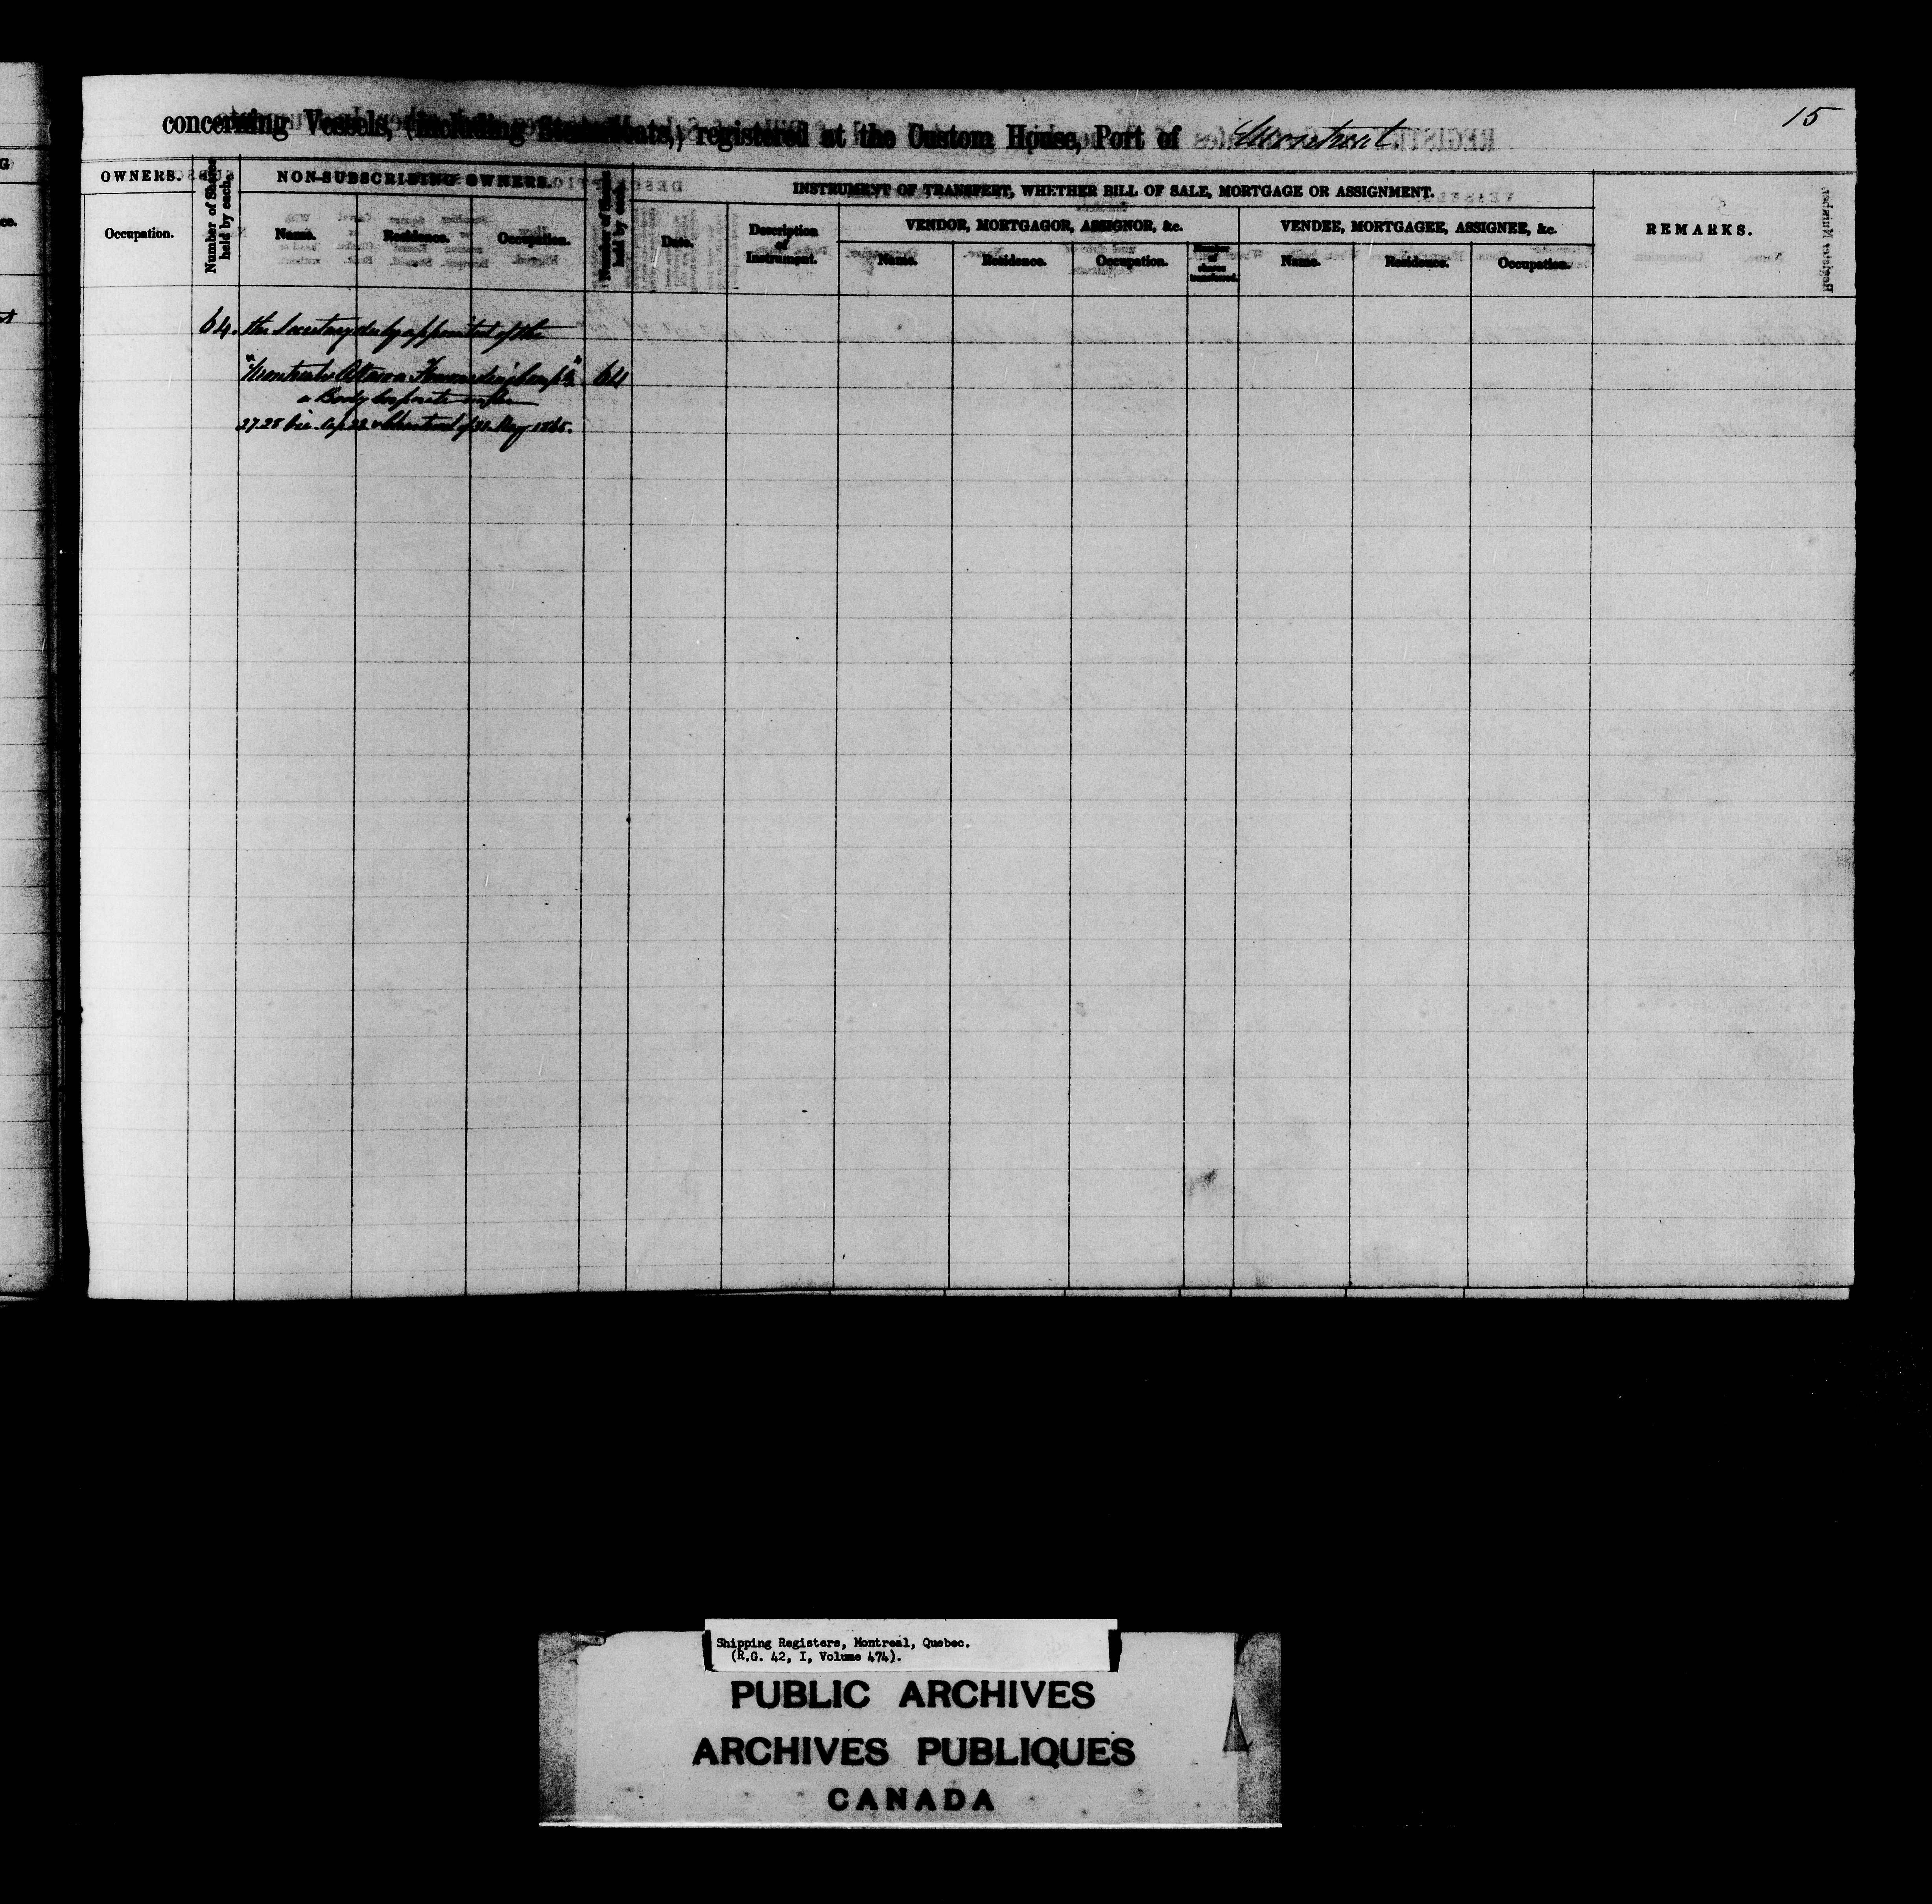 15
concerning Vessels, (including Steamboats,) registered at the Custom House, Port of Montreal
OWNERS.
Number of Shares held by each.
NON-SUBSCRIBING OWNERS.
Number of Shares held by each.
INSTRUMENT OF TRANSFERT, WHETHER BILL OF SALE, MORTGAGE OR ASSIGNMENT.
REMARKS.
Occupation.
Name.
Residence.
Occupation.
Date.
Description of Instrument.
VENDOR, MORTGAGOR, ASSIGNOR, &c.
VENDEE, MORTGAGEE, ASSIGNEE, &c.
Name.
Residence.
Occupation.
Number of shares transferred.
Name.
Residence.
Occupation.
64. the Secretary duly appointed of the
"Montreal & Ottawa Forwarding Comp'y" 64
a Body Corporate under
27.28 Vic. Cap 23 of 31 May 1865.
Shipping Registers, Montreal, Quebec.
(R.G. 42, I, Volume 474).
PUBLIC ARCHIVES
ARCHIVES PUBLIQUES
CANADA